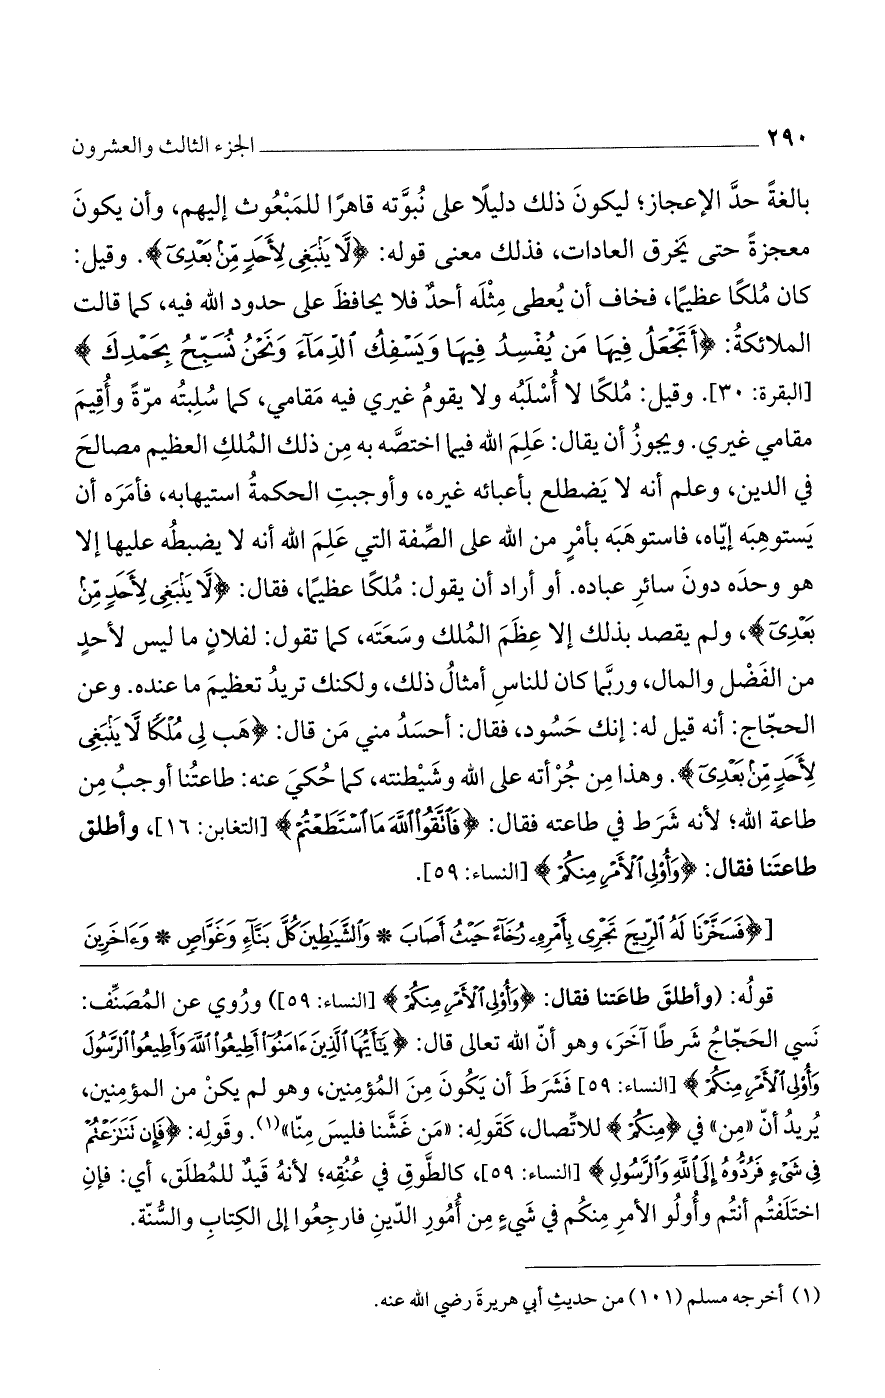 ٢٩٠ الجزء الثالث والعشرون
بالغةً حدَّ الإعجاز؛ ليكونَ ذلك دليلًا على نُبوَّته قاهرًا للمَبْعُوث إليهم، وأن يكونَ
معجزةً حتى يَخرق العادات، فذلك معنى قوله: ﴿لَّا يَنۢبَغِى لِأَحَدٍ مِّنۢ بَعْدِىٓ﴾. وقيل:
كان مُلكًا عظيمًا، فخاف أن يُعطى مِثْلَه أحدٌ فلا يحافظَ على حدود الله فيه، كما قالت
الملائكةُ: ﴿أَتَجْعَلُ فِيهَا مَن يُفْسِدُ فِيهَا وَيَسْفِكُ ٱلدِّمَآءَ وَنَحْنُ نُسَبِّحُ بِحَمْدِكَ﴾
[البقرة: ٣٠]. وقيل: مُلكًا لا أُسْلَبُه ولا يقومُ غيري فيه مَقامي، كما سُلِبتُه مرّةً وأُقِيمَ
مقامي غيري. ويجوزُ أن يقال: عَلِمَ الله فيما اختصَّه به مِن ذلك المُلكِ العظيم مصالحَ
في الدين، وعلم أنه لا يَضطلع بأعبائه غيره، وأوجبتِ الحكمةُ استيهابه، فأمَرَه أن
يَستوهِبَه إيّاه، فاستوهَبَه بأمْرٍ من الله على الصِّفة التي عَلِمَ الله أنه لا يضبطُه عليها إلا
هو وحدَه دونَ سائرِ عباده. أو أراد أن يقول: مُلكًا عظيمًا، فقال: ﴿لَّا يَنۢبَغِى لِأَحَدٍ مِّنۢ
بَعْدِىٓ﴾، ولم يقصد بذلك إلا عِظَمَ المُلك وسَعَتَه، كما تقول: لفلانٍ ما ليس لأحدٍ
من الفَضْل والمال، وربَّما كان للناسِ أمثالُ ذلك، ولكنك تريدُ تعظيمَ ما عنده. وعن
الحجّاج: أنه قيل له: إنك حَسُود، فقال: أحسَدُ مني مَن قال: ﴿هَب لِى مُلْكًا لَّا يَنۢبَغِى
لِأَحَدٍ مِّنۢ بَعْدِىٓ﴾. وهذا مِن جُرْأته على الله وشَيْطنته، كما حُكيَ عنه: طاعتُنا أوجبُ مِن
طاعة الله؛ لأنه شَرَط في طاعته فقال: ﴿فَٱتَّقُوا۟ ٱللَّهَ مَا ٱسْتَطَعْتُمْ﴾ [التغابن: ١٦]، وأطلق
طاعتَنا فقال: ﴿وَأُو۟لِى ٱلْأَمْرِ مِنكُمْ﴾ [النساء: ٥٩].
[﴿فَسَخَّرْنَا لَهُ ٱلرِّيحَ تَجْرِى بِأَمْرِهِۦ رُخَآءً حَيْثُ أَصَابَ * وَٱلشَّيَٰطِينَ كُلَّ بَنَّآءٍ وَغَوَّاصٍ * وَءَاخَرِينَ
قولُه: (وأطلقَ طاعَتنا فقال: ﴿وَأُو۟لِى ٱلْأَمْرِ مِنكُمْ﴾ [النساء: ٥٩]) ورُوي عن المُصَنِّف:
نَسي الحَجّاجُ شَرطًا آخَرَ، وهو أنّ الله تعالى قال: ﴿يَٰٓأَيُّهَا ٱلَّذِينَ ءَامَنُوٓا۟ أَطِيعُوا۟ ٱللَّهَ وَأَطِيعُوا۟ ٱلرَّسُولَ
وَأُو۟لِى ٱلْأَمْرِ مِنكُمْ﴾ [النساء: ٥٩] فَشَرَطَ أن يَكُونَ مِنَ المُؤمِنين، وهو لم يكنْ من المؤمنين،
يُريدُ أنّ «مِن» في ﴿مِنكُمْ﴾ للاتِّصال، كَقَولِه: «مَن غَشَّنا فليسَ مِنّا»(١). وقَولِه: ﴿فَإِن تَنَٰزَعْتُمْ
فِى شَىْءٍ فَرُدُّوهُ إِلَى ٱللَّهِ وَٱلرَّسُولِ﴾ [النساء: ٥٩]، كالطَّوقِ في عُنُقِه؛ لأنهُ قَيدٌ للمُطلَق، أي: فإنِ
اختَلَفتُم أنتُم وأُولُو الأمرِ مِنكُم في شَيءٍ مِن أُمُورِ الدّينِ فارجِعُوا إلى الكِتابِ والسُّنّة.
(١) أخرجه مسلم (١٠١) من حديثِ أبي هريرةَ رضي الله عنه.